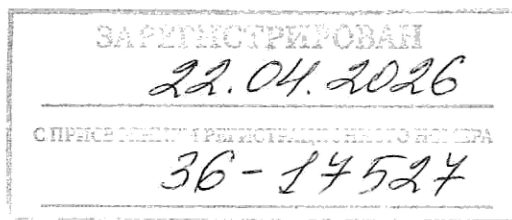 ЗАРЕГИСТРИРОВАН
22.04.2026
С ПРИСВОЕНИЕМ РЕГИСТРАЦИОННОГО НОМЕРА
36-17527